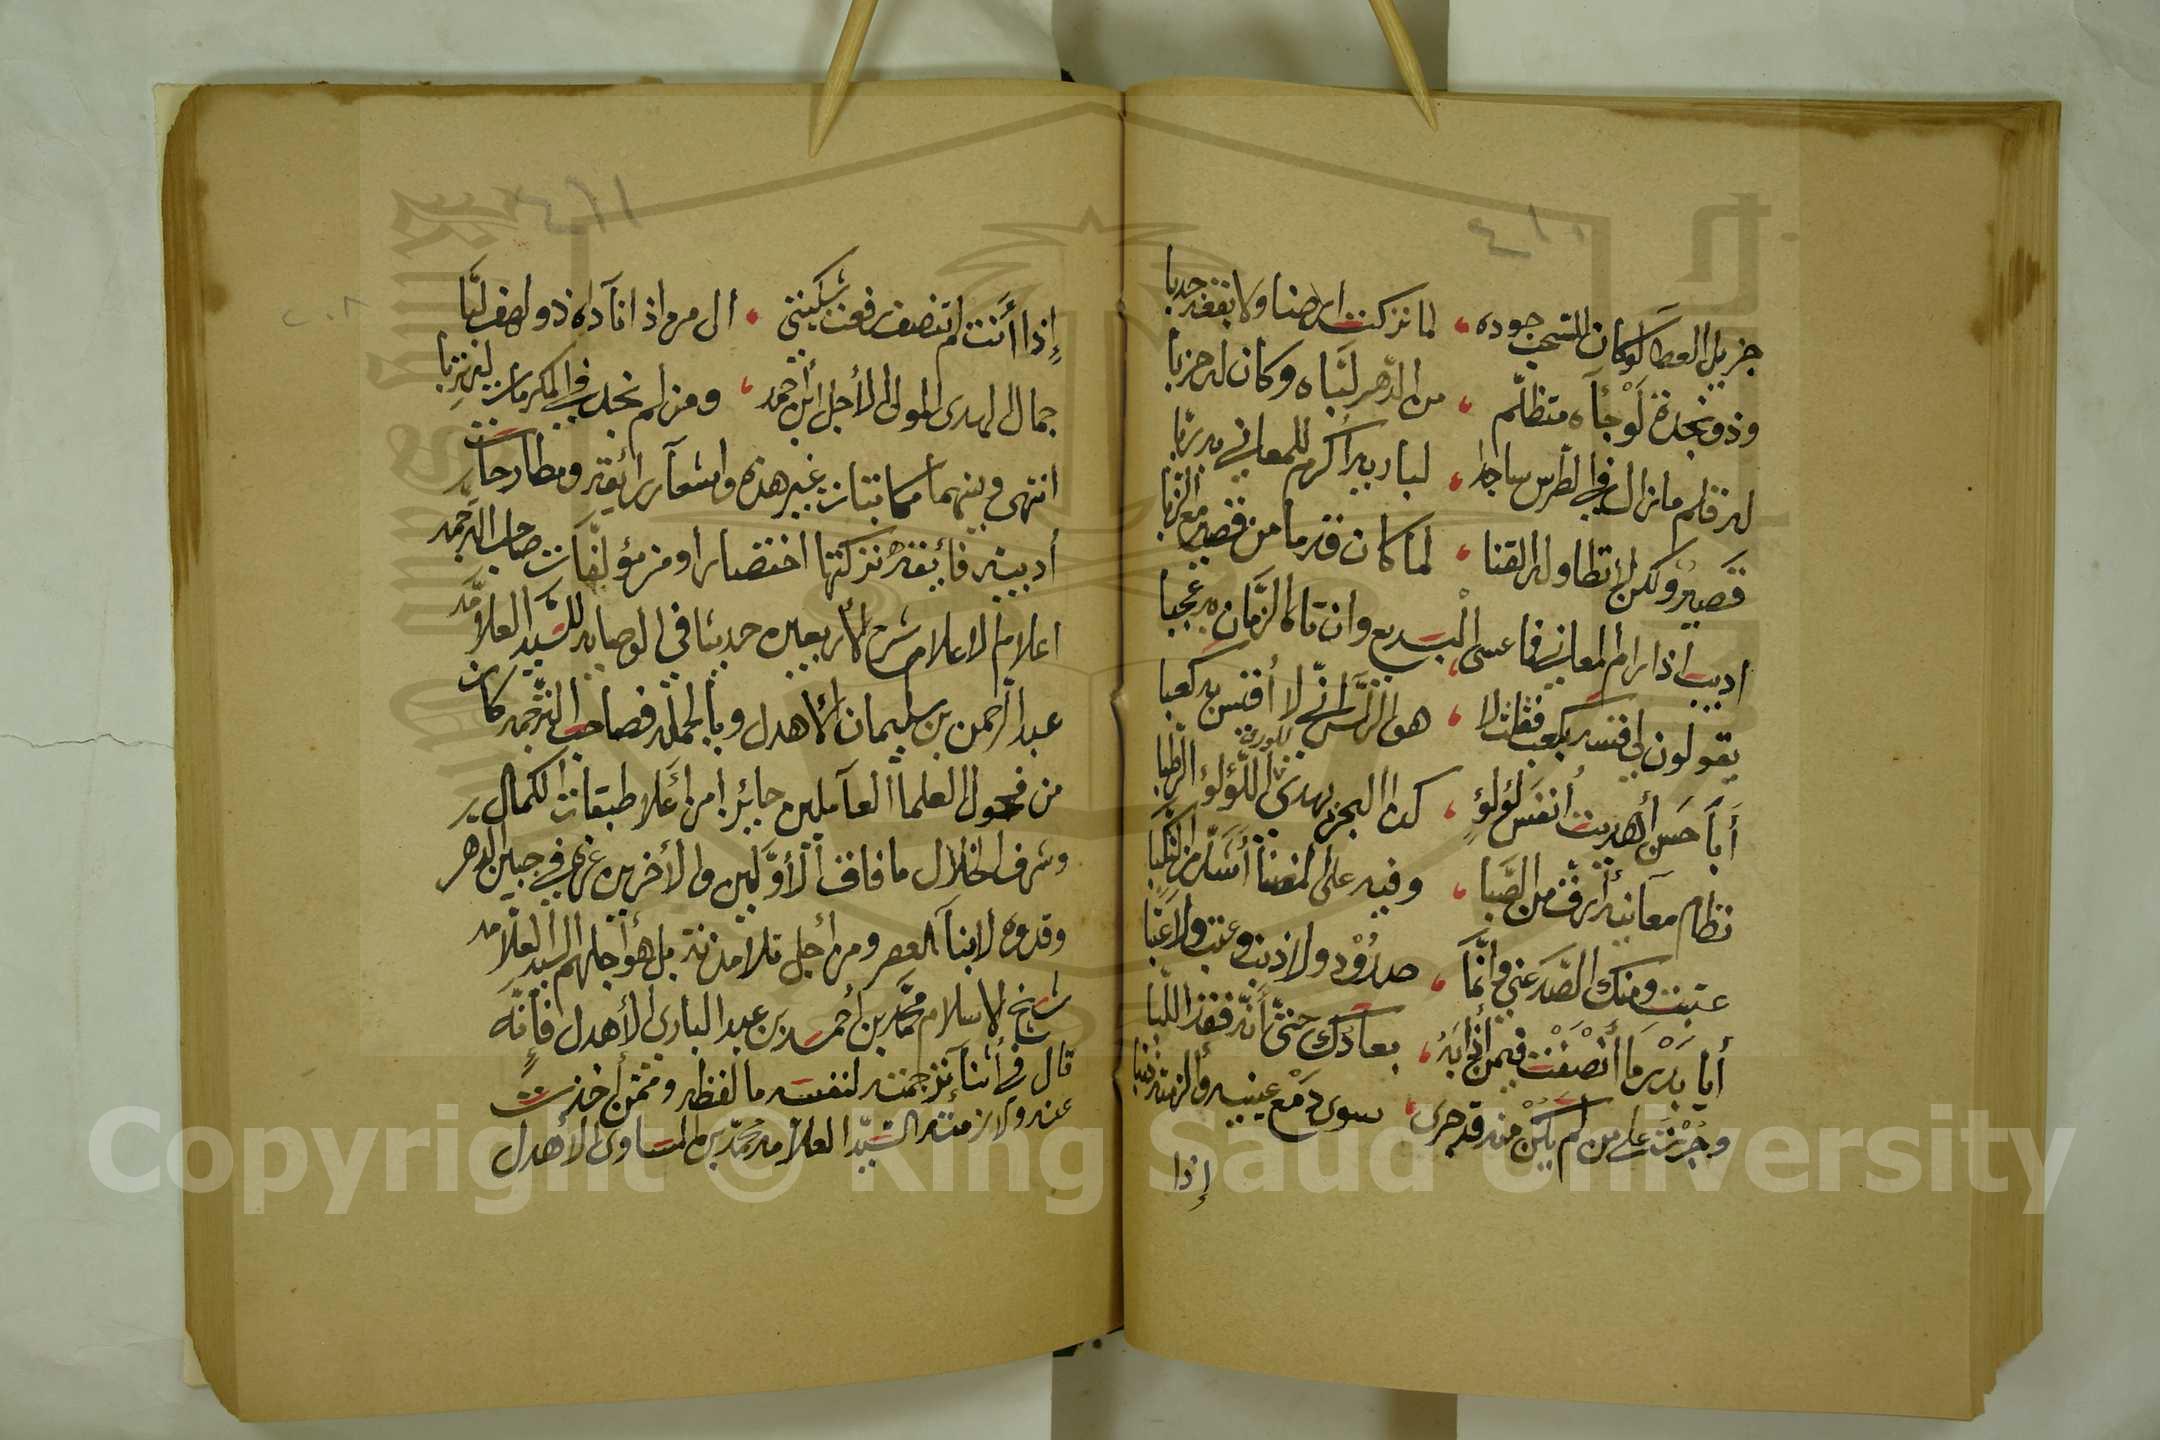 ٤١٠
جزيل العطا لو كان للسحب جوده ، لما تركت أرضا ولا بقعة جدبا
وذو نجدة لو جآه متظلم ، من الدهر لباه وكان له حزبا
له قلم ما زال في الطرس ساجدا ، لباريه أكرم للمعاني به ربا
قصير ولكن لا تطاوله القنا ، لما كان قدما من قصير مع الزبا
اديب اذا رام المعاني فما عسى البديع وان تاه الزمان به عجبا
يقولون لي قسه بكعب فقلت لا ، هو الراس اني لا أقيس به كعبا
أبا حسن أهديت أنفس لؤلؤ ، كذا البحر يهدي اللؤلؤ الرطبا
نظام معانيه أرق من الصبا ، وفيه على المضنا أشد من النكبا
عتبت ومنك الصد عني وانما ، صدود ولا ذنب وعتب ولا عتبا
أيا بدر ما أنصفت فيمن أذابه ، بعادك حتى أنه فقد اللبا
وجرت على من لم يكن منه قد جرى ، سوى دمع عينيه وألزمته ذنبا
إذا
٤١١
٢٠٨
إذا أنت لم تنصف رفعت شكيتي ، الى من اذا ناداه ذو لهف لبا
جمال الهدى المولى الأجل أبن حمد ، ومن لم نجد في المكرمات له تربا
انتهى وبينهما مكاتبات غير هذه واشعار رائقة ومطارحات
أدبية فائقة تركتها اختصارا ومن مؤلفات صاحب الترجمه
اعلام الاعلام شرح الأربعين حديثا في الوصايه للسيد العلامه
عبد الرحمن بن سليمان الأهدل وبالجمله فصاحب الترجمه كان
من فحول العلما العاملين حائزا من أعلا طبقات الكمال
وشرف الخلال ما فاق الأولين والأخرين غره في جبين الدهر
وقدوه لابنآ العصر ومن أجل تلامذته بل هو أجلهم السيد العلامه
شيخ الاسلام محمد بن أحمد بن عبد الباري الأهدل فإنه
قال في أثنآ ترجمته لنفسه ما لفظه وممن أخذت
عنه ولازمته السيد العلامه محمد بن المساوى الأهدل
Copyright © King Saud University